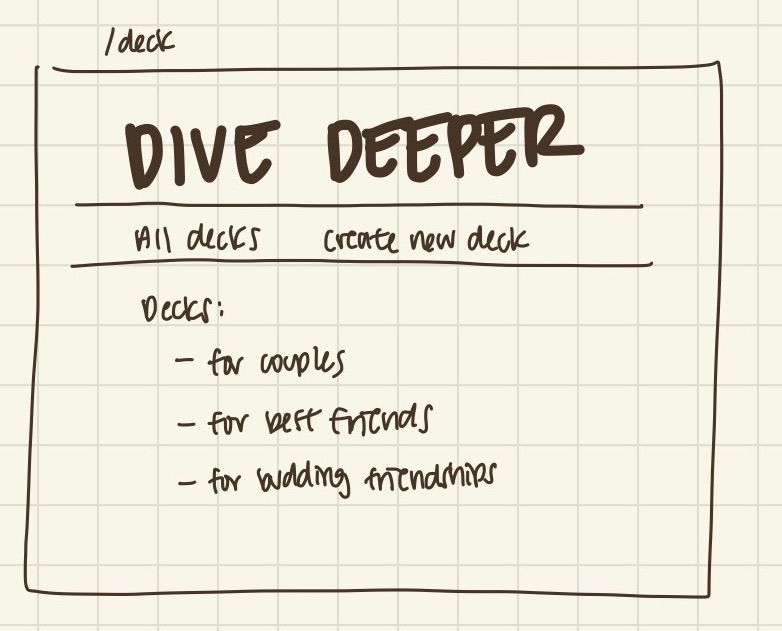 /deck
DIVE DEEPER
All decks create new deck
Decks:
- for couples
- for best friends
- for budding friendships